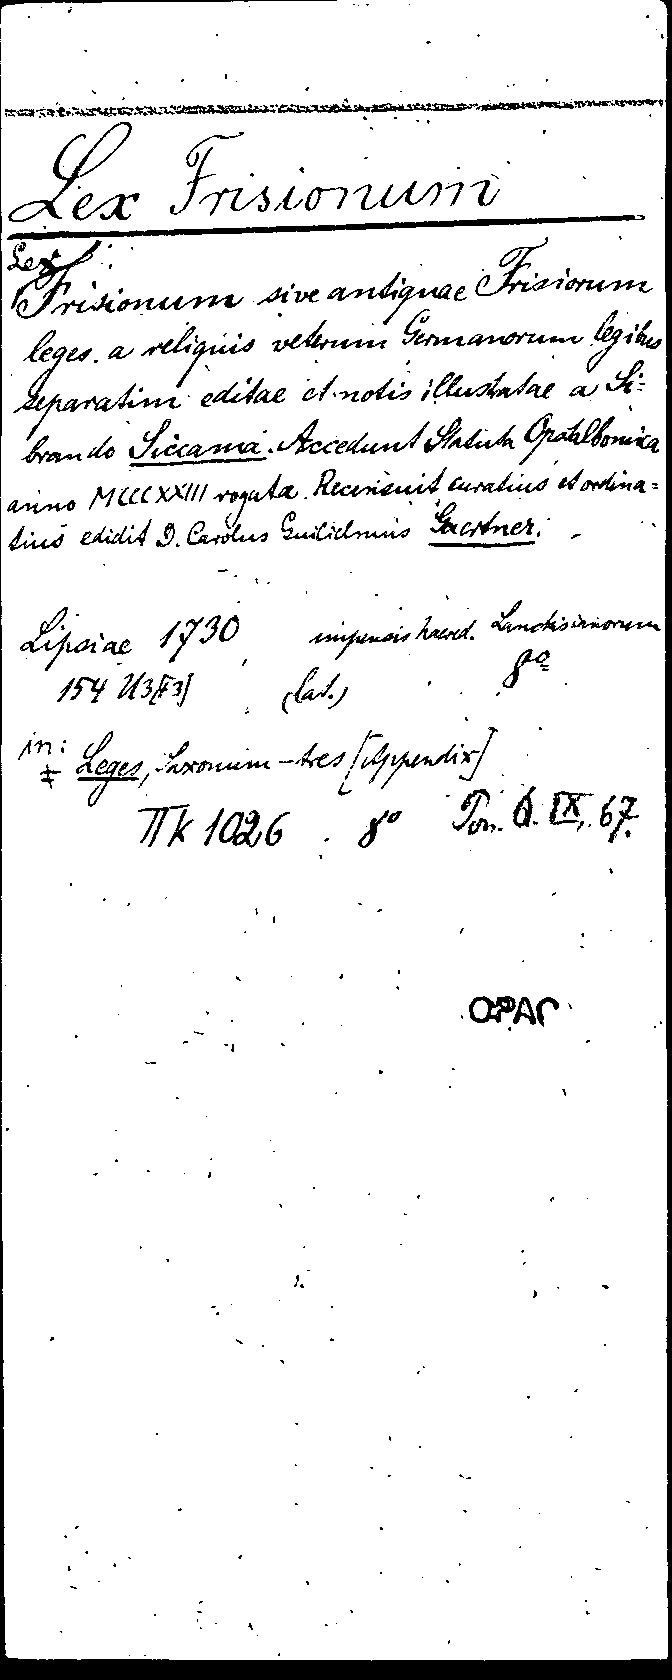 Lex Frisionum
Lex
Frisionum sive antiquae Frisiorum
leges. a reliquis veterum Germanorum legibus
separatim editae et notis illustratae a Si=
brando Siccama. Accedunt Statuta Opstalbomica
anno MCCCXXIII rogata. Recensuit curatius et ordina=
tius edidit D. Carolus Guilielmus Gaertner.
Lipsiae 1730 impensis haered. Lanckisianorum
8°
154 U3[F3] (lat.)
in:
‡ Leges, Saxonum-tres [Appendix]
IIk 1026 8° Pon. 6. IX. 67.
OPAC